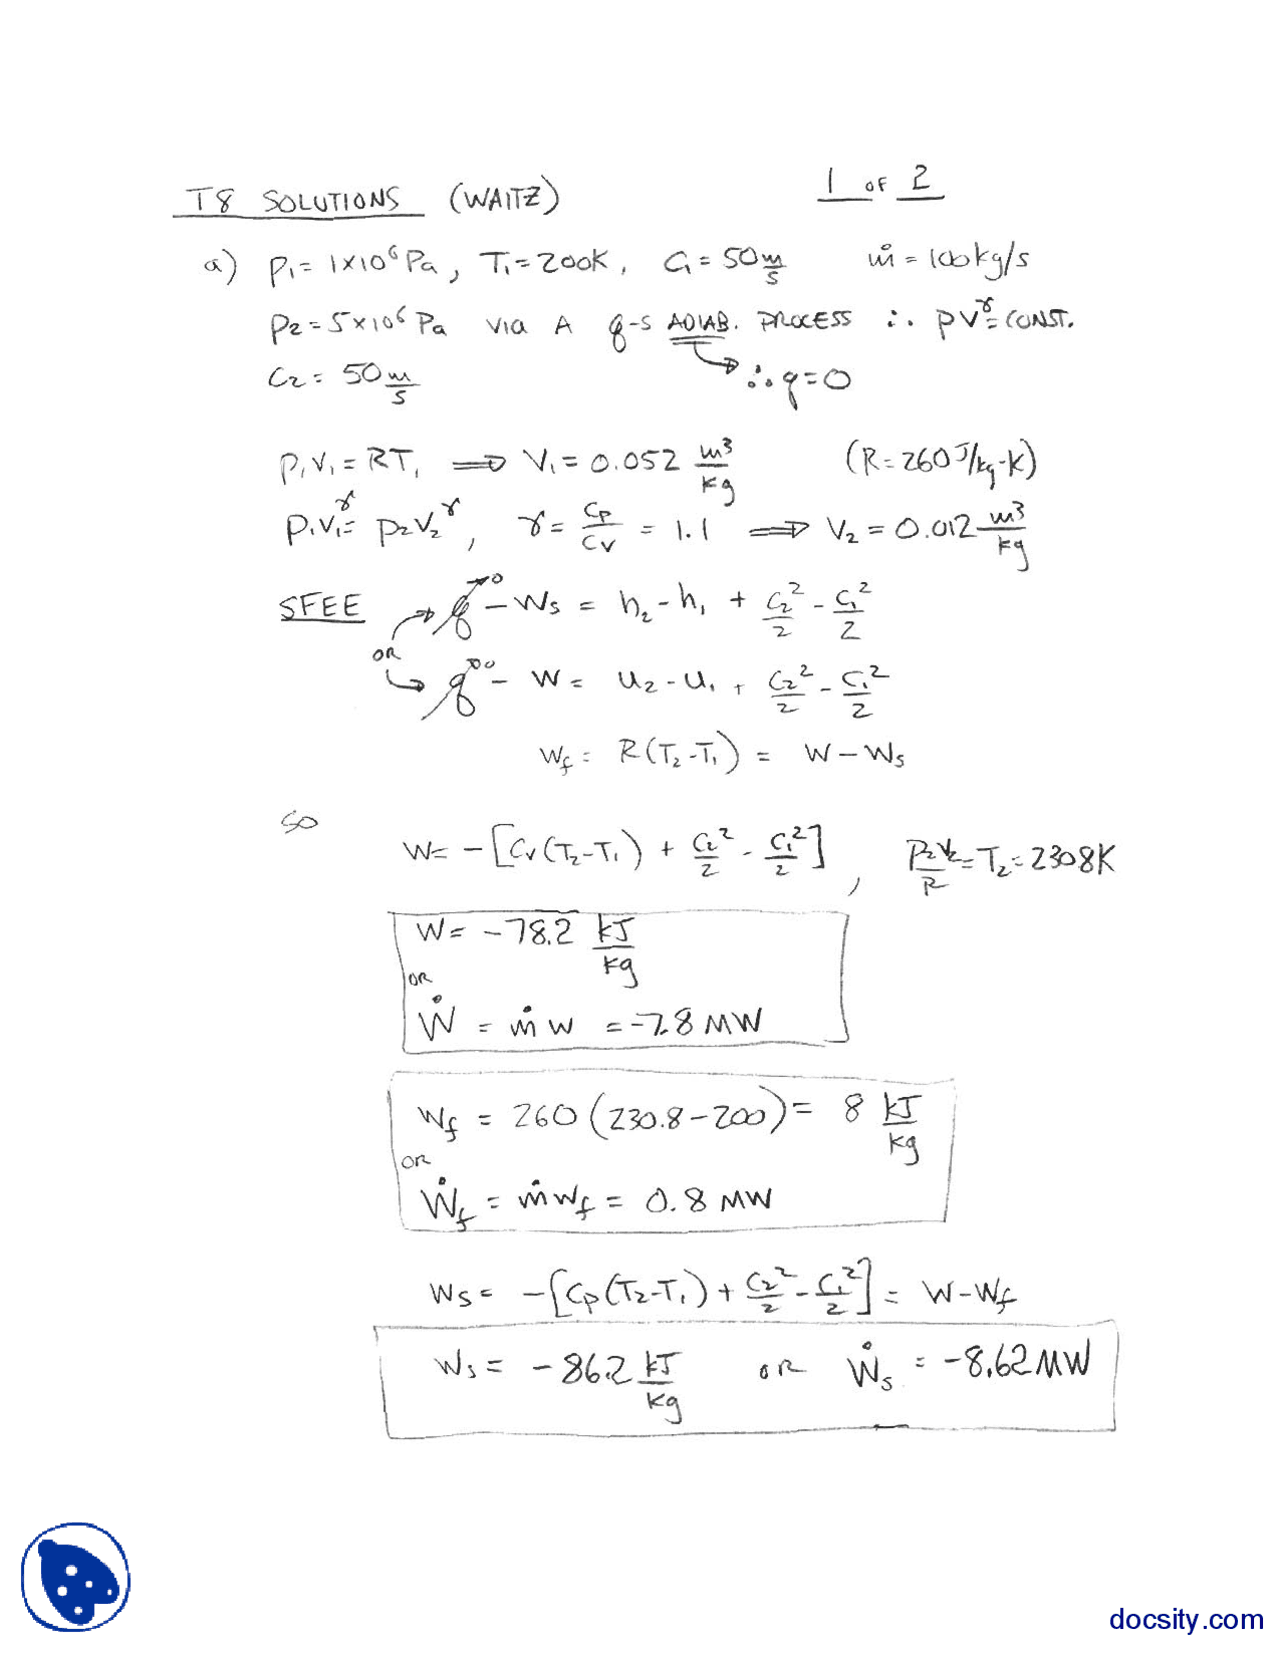 T8 SOLUTIONS (WAITZ) 1 OF 2
a) P₁ = 1×10⁶ Pa, T₁ = 200K, C₁ = 50 m/s ṁ = 100 kg/s
P₂ = 5×10⁶ Pa VIA A q-s ADIAB. PROCESS ∴ pv^γ = CONST.
C₂ = 50 m/s ∴ q = 0
P₁V₁ = RT₁ ⟹ V₁ = 0.052 m³/kg (R = 260 J/kg-K)
P₁V₁^γ = P₂V₂^γ, γ = Cp/Cv = 1.1 ⟹ V₂ = 0.012 m³/kg
SFEE q→0 - Ws = h₂ - h₁ + C₂²/2 - C₁²/2
OR
q→0 - W = u₂ - u₁ + C₂²/2 - C₁²/2
Wf = R(T₂-T₁) = W - Ws
SO
W = -[Cv(T₂-T₁) + C₂²/2 - C₁²/2], P₂V₂/R = T₂ = 230.8K
W = -78.2 kJ/kg
OR
Ẇ = ṁw = -7.8 MW
Wf = 260(230.8-200) = 8 kJ/kg
OR
Ẇf = ṁwf = 0.8 MW
Ws = -[Cp(T₂-T₁) + C₂²/2 - C₁²/2] = W - Wf
Ws = -86.2 kJ/kg OR Ẇs = -8.62 MW
docsity.com